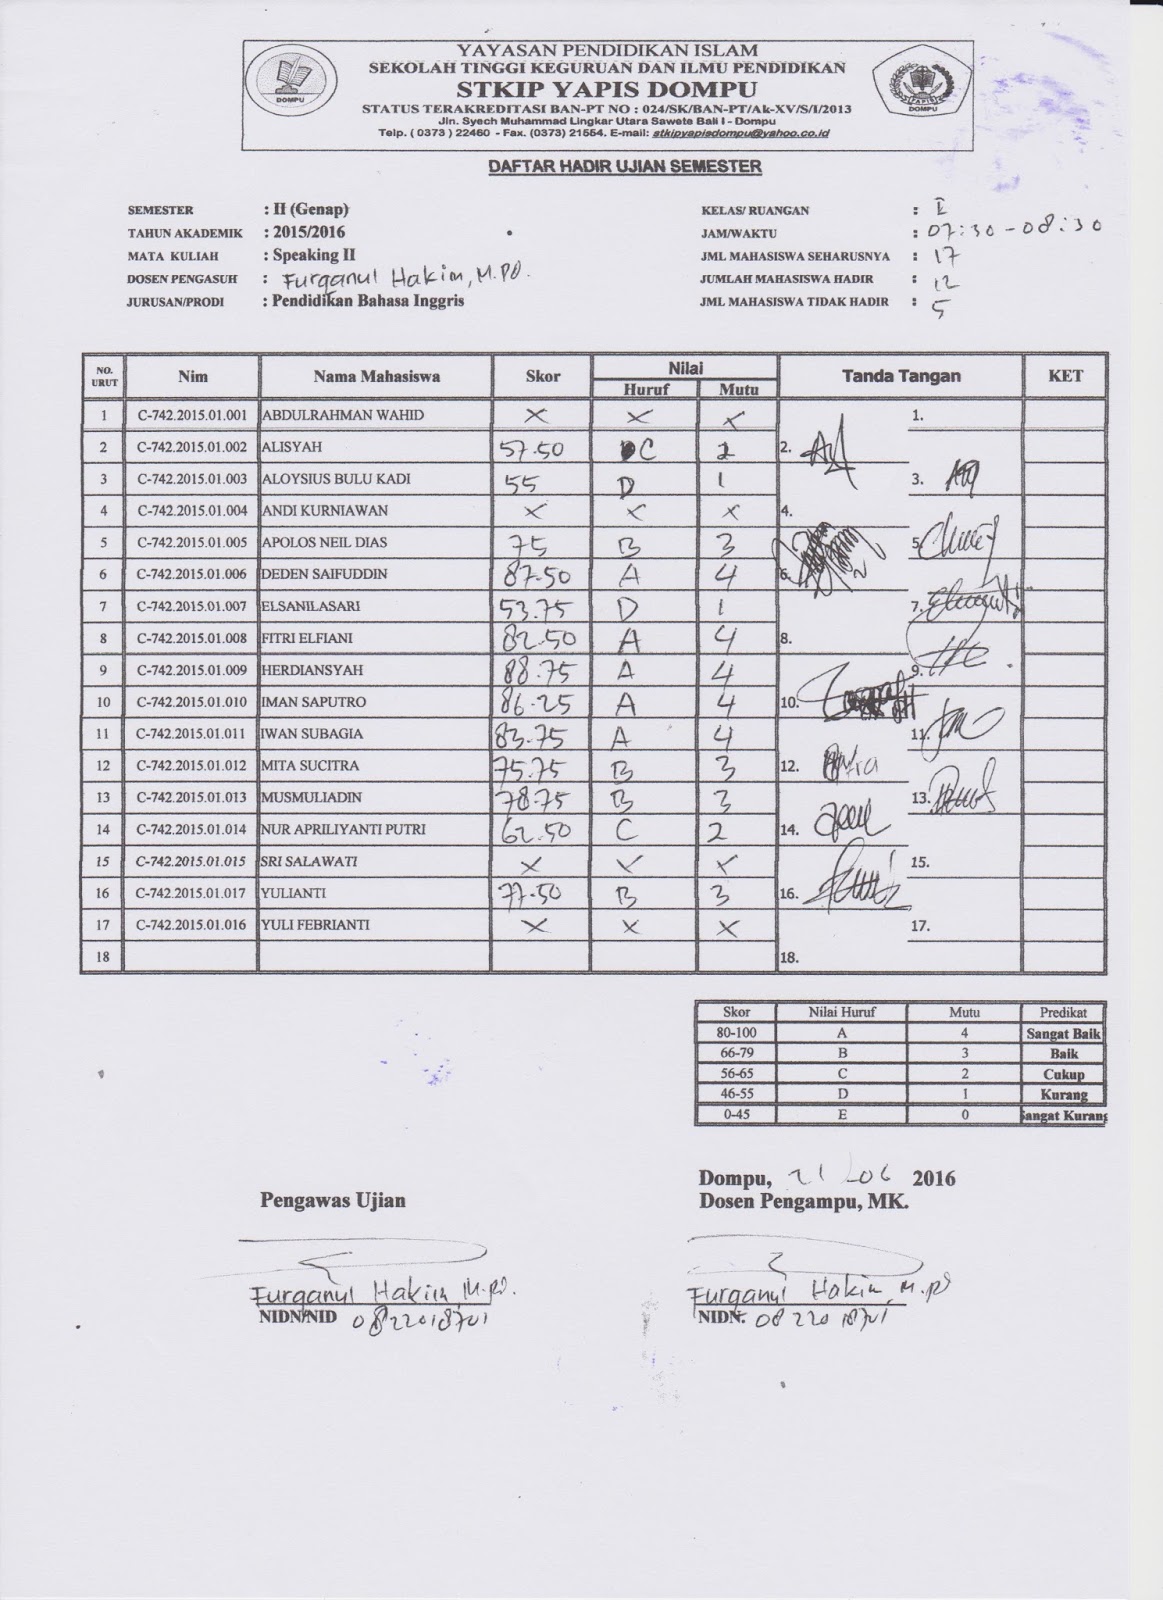 YAYASAN PENDIDIKAN ISLAM
SEKOLAH TINGGI KEGURUAN DAN ILMU PENDIDIKAN
STKIP YAPIS DOMPU
STATUS TERAKREDITASI BAN-PT NO : 024/SK/BAN-PT/Ak-XV/S/I/2013
Jln. Syech Muhammad Lingkar Utara Sawete Bali I - Dompu
Telp. ( 0373 ) 22460 - Fax. (0373) 21554. E-mail: stkipyapisdompu@yahoo.co.id
DOMPU
YAPIS
DOMPU
DAFTAR HADIR UJIAN SEMESTER
SEMESTER : II (Genap) KELAS/ RUANGAN : I
TAHUN AKADEMIK : 2015/2016 JAM/WAKTU : 07:30-08:30
MATA KULIAH : Speaking II JML MAHASISWA SEHARUSNYA : 17
DOSEN PENGASUH : Furqanul Hakim, M.Pd. JUMLAH MAHASISWA HADIR : 12
JURUSAN/PRODI : Pendidikan Bahasa Inggris JML MAHASISWA TIDAK HADIR : 5
NO. URUT Nim Nama Mahasiswa Skor Nilai Tanda Tangan KET
Huruf Mutu
1 C-742.2015.01.001 ABDULRAHMAN WAHID X X X 1.
2 C-742.2015.01.002 ALISYAH 57.50 C 2 2.
3 C-742.2015.01.003 ALOYSIUS BULU KADI 55 D 1 3.
4 C-742.2015.01.004 ANDI KURNIAWAN X X X 4.
5 C-742.2015.01.005 APOLOS NEIL DIAS 75 B 3 5.
6 C-742.2015.01.006 DEDEN SAIFUDDIN 87.50 A 4 6.
7 C-742.2015.01.007 ELSANILASARI 53.75 D 1 7.
8 C-742.2015.01.008 FITRI ELFIANI 82.50 A 4 8.
9 C-742.2015.01.009 HERDIANSYAH 88.75 A 4 9.
10 C-742.2015.01.010 IMAN SAPUTRO 86.25 A 4 10.
11 C-742.2015.01.011 IWAN SUBAGIA 83.75 A 4 11.
12 C-742.2015.01.012 MITA SUCITRA 75.75 B 3 12.
13 C-742.2015.01.013 MUSMULIADIN 78.75 B 3 13.
14 C-742.2015.01.014 NUR APRILIYANTI PUTRI 62.50 C 2 14.
15 C-742.2015.01.015 SRI SALAWATI X X X 15.
16 C-742.2015.01.017 YULIANTI 77.50 B 3 16.
17 C-742.2015.01.016 YULI FEBRIANTI X X X 17.
18 18.
Skor Nilai Huruf Mutu Predikat
80-100 A 4 Sangat Baik
66-79 B 3 Baik
56-65 C 2 Cukup
46-55 D 1 Kurang
0-45 E 0 Sangat Kurang
Dompu, 21/06 2016
Pengawas Ujian Dosen Pengampu, MK.
Furqanul Hakim, M.Pd. Furqanul Hakim, M.Pd
NIDN/NID 0822018701 NIDN. 0822018701